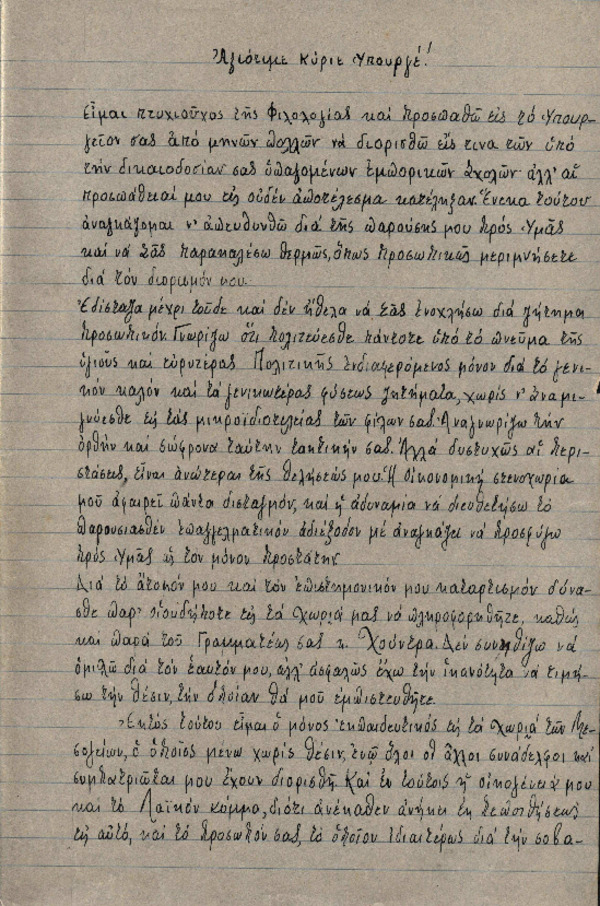 Ἀξιότιμε Κύριε Ὑπουργέ!
Εἶμαι πτυχιοῦχος τῆς Φιλολογίας καὶ προσπαθῶ εἰς τό Ὑπουρ-
γεῖον σας ἀπό μηνῶν πολλῶν νά διορισθῶ εἴς τινα τῶν ὑπό
τήν δικαιοδοσίαν σας ὑπαγομένων ἐμπορικῶν σχολῶν ἀλλ' αἱ
προσπάθειαί μου εἰς οὐδέν ἀποτέλεσμα κατέληξαν. Ἕνεκα τούτου
ἀναγκάζομαι ν' ἀπευθυνθῶ διά τῆς παρούσης μου πρός Ὑμᾶς
καί νά Σᾶς παρακαλέσω θερμῶς, ὅπως προσωπικῶς μεριμνήσετε
διά τόν διορισμόν μου.
Ἐδίσταζα μέχρι τοῦδε καί δέν ἤθελα νά Σᾶς ἐνοχλήσω διά ζήτημα
προσωπικόν. Γνωρίζω ὅτι πολιτεύεσθε πάντοτε ὑπό τό πνεῦμα τῆς
ὑγιοῦς καί εὐρυτέρας Πολιτικῆς ἐνδιαφερόμενος μόνον διά τό γενι-
κόν καλόν καί τά γενικωτέρας φύσεως ζητήματα, χωρίς ν' ἀναμι-
γνύεσθε εἰς τάς μικροϊδιοτελείας τῶν φίλων σας. Ἀναγνωρίζω τήν
ὀρθήν καί σώφρονα ταύτην τακτικήν σας. Ἀλλά δυστυχῶς αἱ περι-
στάσεις, εἶναι ἀνώτεραι τῆς θελήσεώς μου. Ἡ οἰκονομική στενοχωρία
μοῦ ἀφαιρεῖ πάντα δισταγμόν, καί ἡ ἀδυναμία νά διευθετήσω τό
παρουσιασθέν ἐπαγγελματικόν ἀδιέξοδον μέ ἀναγκάζει νά προσφύγω
πρός Ὑμᾶς ὡς τόν μόνον προστάτην.
Διά τό ἄτομόν μου καί τόν ἐπιστημονικόν μου καταρτισμόν δύνα-
σθε παρ' οἱουδήποτε εἰς τά χωριά μας νά πληροφορηθῆτε, καθώς
καί παρά τοῦ Γραμματέως σας κ. Χούντρα. Δέν συνηθίζω νά
ὁμιλῶ διά τόν ἑαυτόν μου, ἀλλ' ἀσφαλῶς ἔχω τήν ἱκανότητα νά τιμή-
σω τήν θέσιν, τήν ὁποίαν θά μοῦ ἐμπιστευθῆτε.
Ἐκτός τούτου εἶμαι ὁ μόνος ἐκπαιδευτικός εἰς τά χωριά τῶν Με-
σογείων, ὁ ὁποῖος μένω χωρίς θέσιν, ἐνῷ ὅλοι οἱ ἄλλοι συνάδελφοι καί
συμπατριῶται μου ἔχουν διορισθῆ. Καί ἐν τούτοις ἡ οἰκογένειά μου
καί τό Λαϊκόν κόμμα, διότι ἀνέκαθεν ἀνήκει ἐκ πεποιθήσεως
εἰς αὐτό, καί τό πρόσωπόν σας, τό ὁποῖον ἰδιαιτέρως διά τήν σοβα-